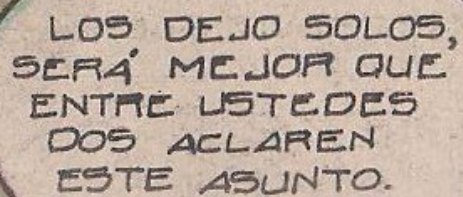 LOS DEJO SOLOS,
SERÁ MEJOR QUE
ENTRE USTEDES
DOS ACLAREN
ESTE ASUNTO.